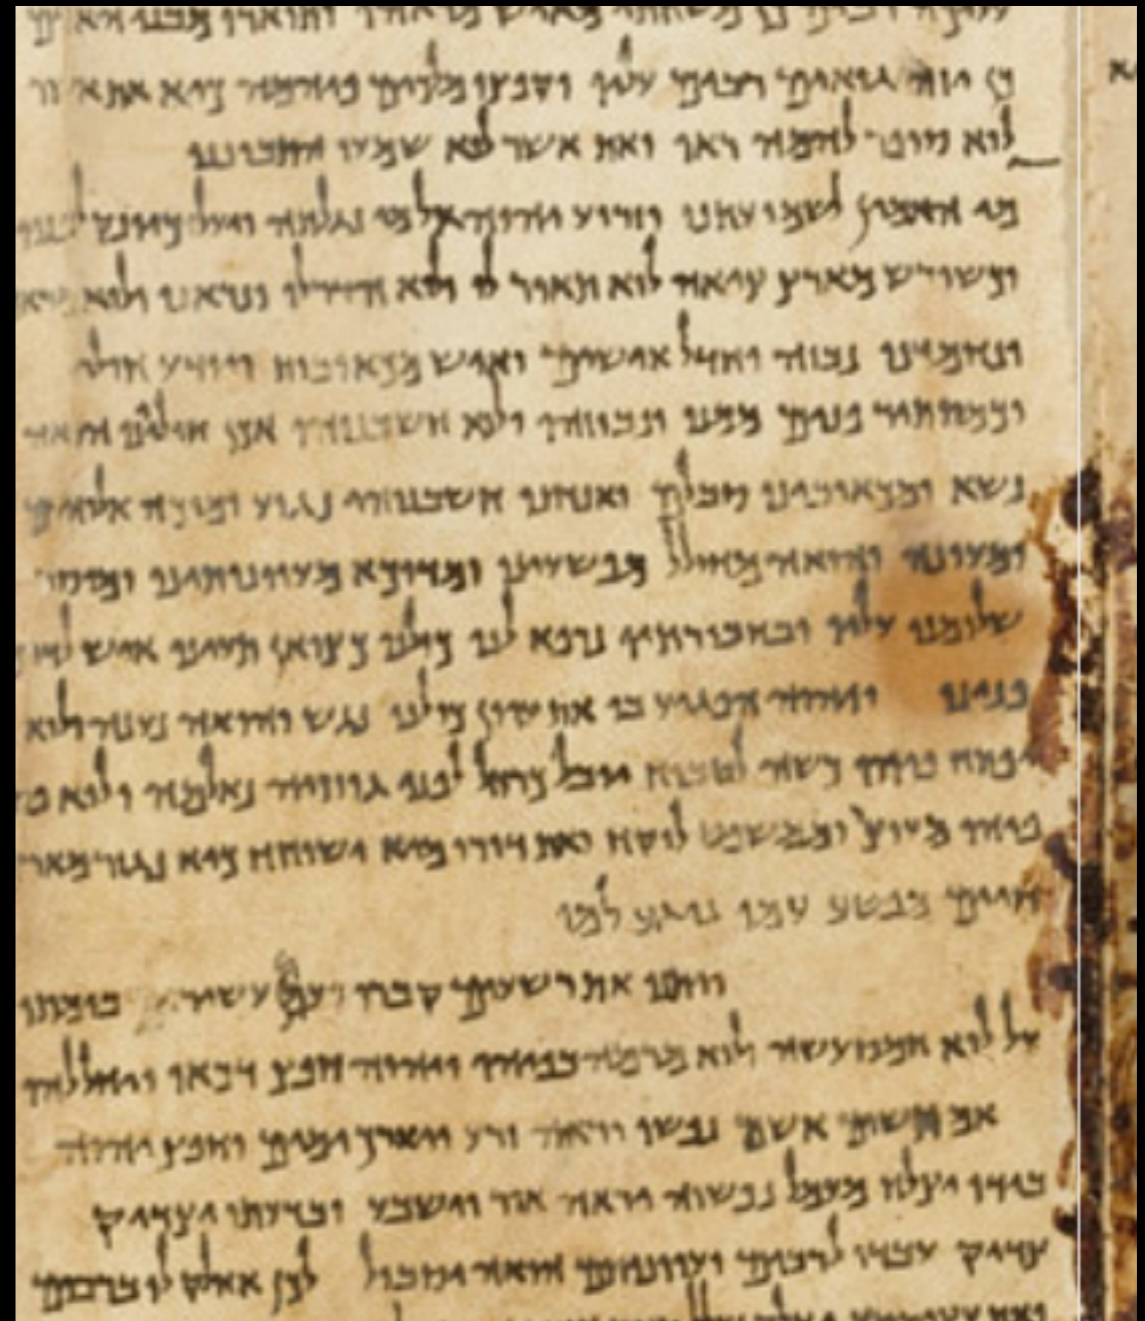 כן משחתי מאיש מראהו ותוארו מבני
כן יזה גואים רבים עליו וקפצו מלכים פיהמה כיא את
לוא סופר להמה ראו ואת אשר לוא שמעו התבוננו
מי האמין לשמועתנו וזרוע יהוה אל מי נגלתה ויעל כיונק לפניו
וכשורש מארץ ציאה לוא תאור לו ולוא הדר לו ונראנו ולוא
ונחמדנו נבזה וחדל אישים ואיש מכאובות ויודע חולי
וכמסתיר פנים ממנו ונבוזהו ולוא חשבנוהו אכן חוליינו הואה
נשא ומכאובינו סבלם ואנחנו חשבנוהו נגוע ומוכה אלוהים
ומעונה והואה מחולל מפשעינו ומדוכא מעוונותינו ומוסר
שלומנו עליו ובחבורתיו נרפא לנו כולנו כצואן תעינו איש
פנינו ויהוה הפגיע בו את עוון כולנו נגש והואה נענה ולוא
יפתח פיהו כשה לטבוח יובל כרחל לפני גוזזיה נאלמה ולוא
פיהו מעוצר וממשפט לוקח ואת דורו מיא ישוחח כיא נגזר מארץ
חיים מפשע עמו נוגע למו
ויתנו את רשעים קברו ועם עשיר בומתו
על לוא חמס עשה ולוא מרמה בפיהו ויהוה חפץ דכאו ויחללהו
אם תשים אשם נפשו יראה זרע ויארך ימים וחפץ יהוה
בידו יצלח מעמל נפשוה יראה אור וישבע ובדעתו יצדיק
צדיק עבדו לרבים ועוונותם הואה יסבול לכן אחלק לו ברבים